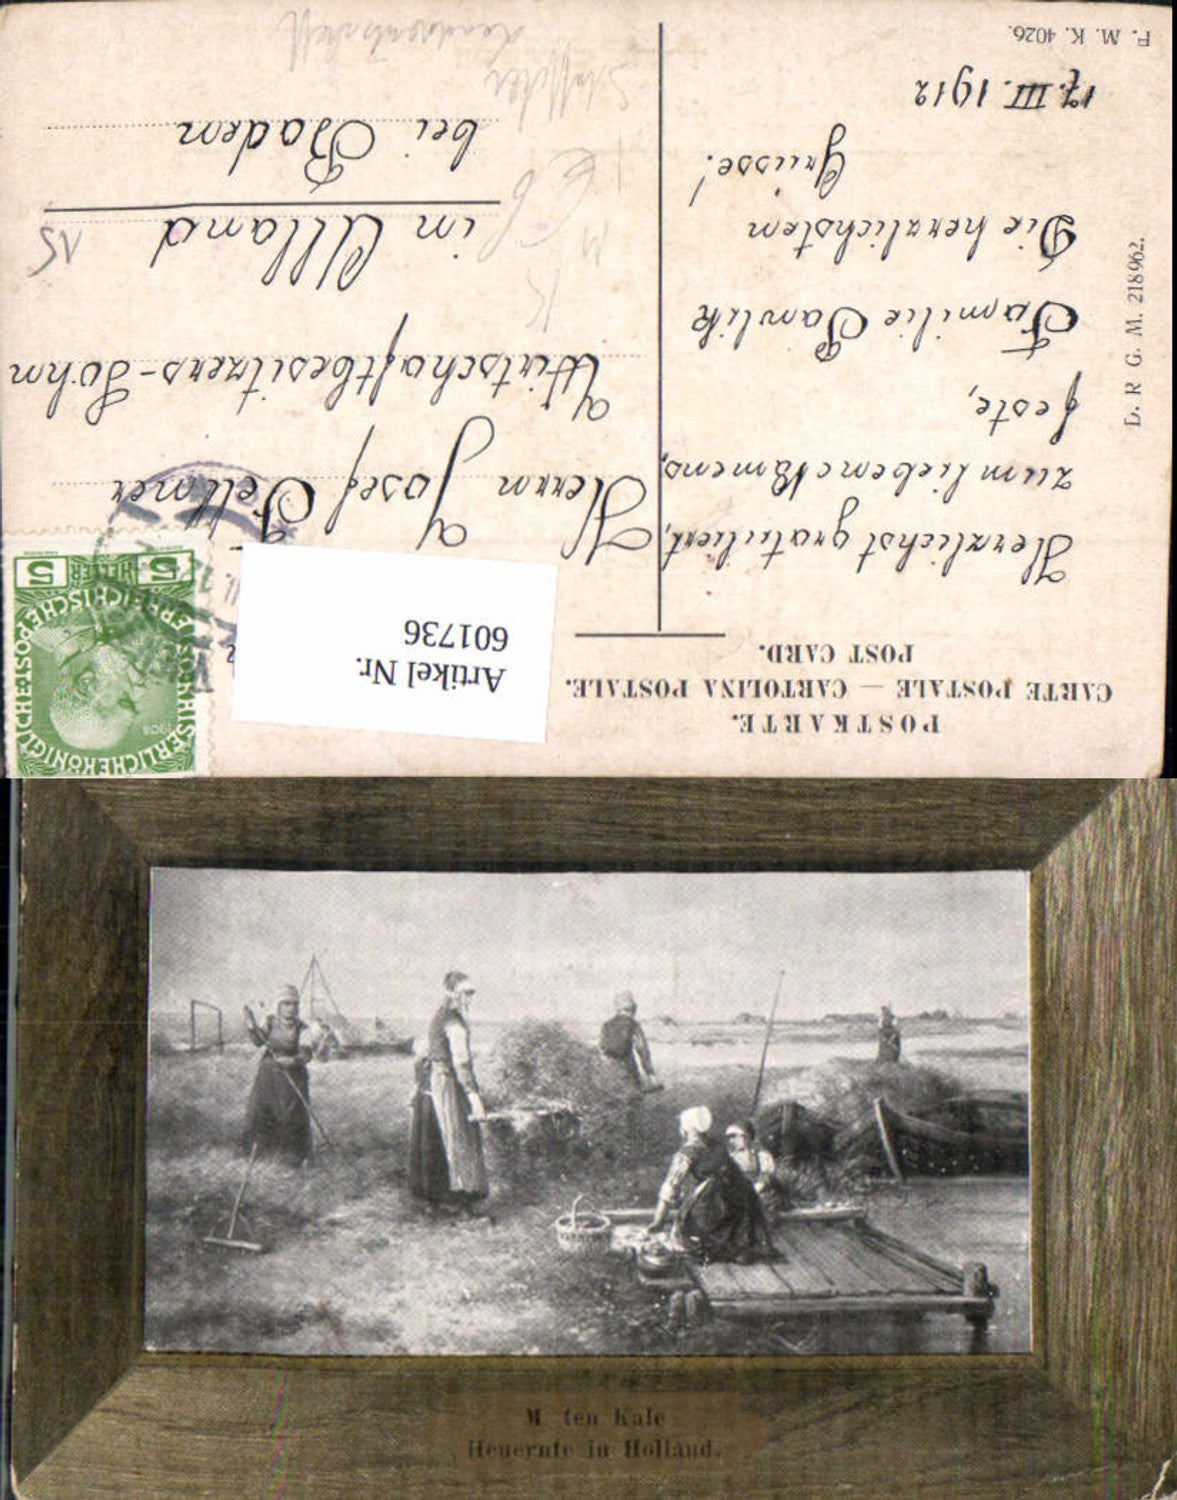 POSTKARTE.
CARTE POSTALE — CARTOLINA POSTALE.
POST CARD.
Artikel Nr.
601736
KAISERLICHE KÖNIGLICHE ÖSTERREICHISCHE POST
1908
5 HELLER 5
Herzlichst gratuliert,
zum liebem Namens,
feste,
Familie Pawlik
Die herzlichsten
Grüsse!
17. III. 1912
Herrn Josef Fellner
Wirtschaftbesitzers-Sohn
im Alland
bei Baden
NS
D. R. G. M. 218962.
F. M. K. 4026.
M. ten Kale
Heuernte in Holland.